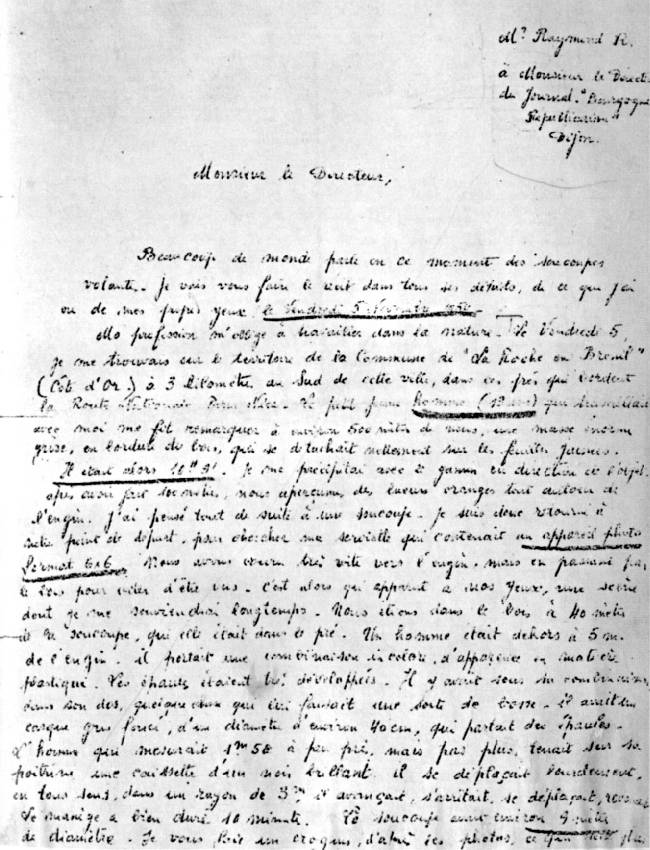 Mr Raymond R.
à Monsieur le Direct
du Journal "Bourgogne
Républicaine"
Dijon.
Monsieur le Directeur,
Beaucoup de monde parle en ce moment des soucoupes
volantes. Je vais vous faire le récit dans tous ses détails, de ce que j'ai
vu de mes propres yeux, le Vendredi 5 Novembre
Ma profession m'oblige à travailler dans la nature. Le Vendredi 5,
je me trouvais sur le territoire de la Commune de "La Roche en Brenil"
(Côte d'Or) à 3 kilomètres au Sud de cette ville, dans les prés qui bordent
la Route Nationale Paris Nice. Le petit jeune homme qui travaillait
avec moi me fit remarquer à environ 500 mètres de nous, une masse énorme
grise, en bordure du bois, qui se détachait nettement sur les feuilles jaunes.
Il était alors 16H. Je me précipitai avec le gamin en direction de l'objet.
après avoir fait mètres, nous aperçumes des lueurs oranges tout autour de
l'engin. J'ai pensé tout de suite à une soucoupe. Je suis donc retourné à
notre point de départ, pour chercher ma serviette qui contenait un appareil photo
format 6x6. Nous avons couru très vite vers l'engin, mais en passant par
le bois pour éviter d'être vus. C'est alors qu'apparut à nos yeux, une scène
dont je me souviendrai longtemps. Nous étions dans le bois à 40 mètres
de la soucoupe, qui elle était dans le pré. Un homme était dehors à 5 m.
de l'engin. il portait une combinaison incolore, d'apparence en matière
plastique. Ses épaules étaient très développées. Il y avait sous sa combinaison,
dans son dos, quelque chose qui lui faisait une sorte de bosse. il avait un
casque gris foncé, d'un diamètre d'environ 40 cm, qui partait des épaules.
L'homme qui mesurait 1m 58 à peu près, mais pas plus, tenait sur sa
poitrine une caissette d'un noir brillant. il se déplaçait lourdement,
en tous sens, dans un rayon de 3m il avançait, s'arrêtait, se déplaçait,
Ce manège a bien duré 10 minutes. La soucoupe avait environ 9 mètres
de diamètre. Je vous fais un croquis, d'après les photos, ce